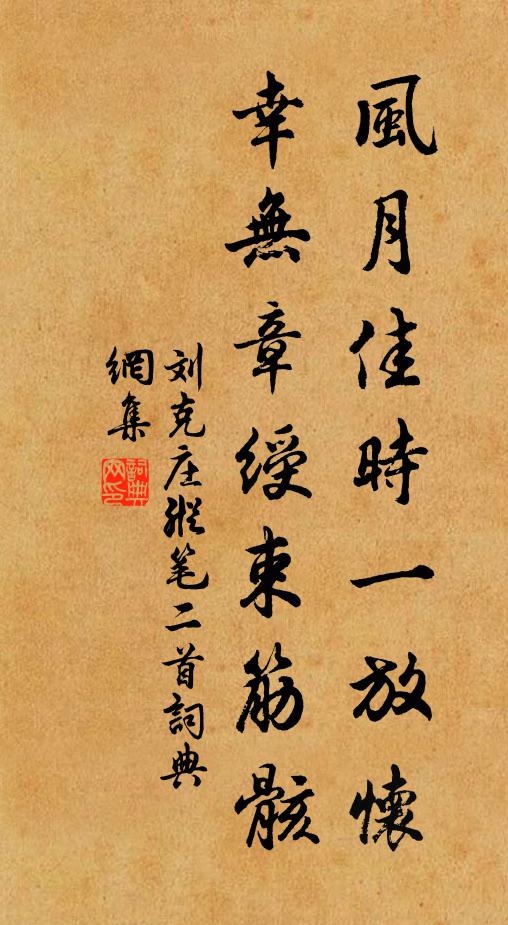 風月佳時一放懷
幸無章綬束筋骸
刘克庄縱笔二首詞典
網集
詞典网印